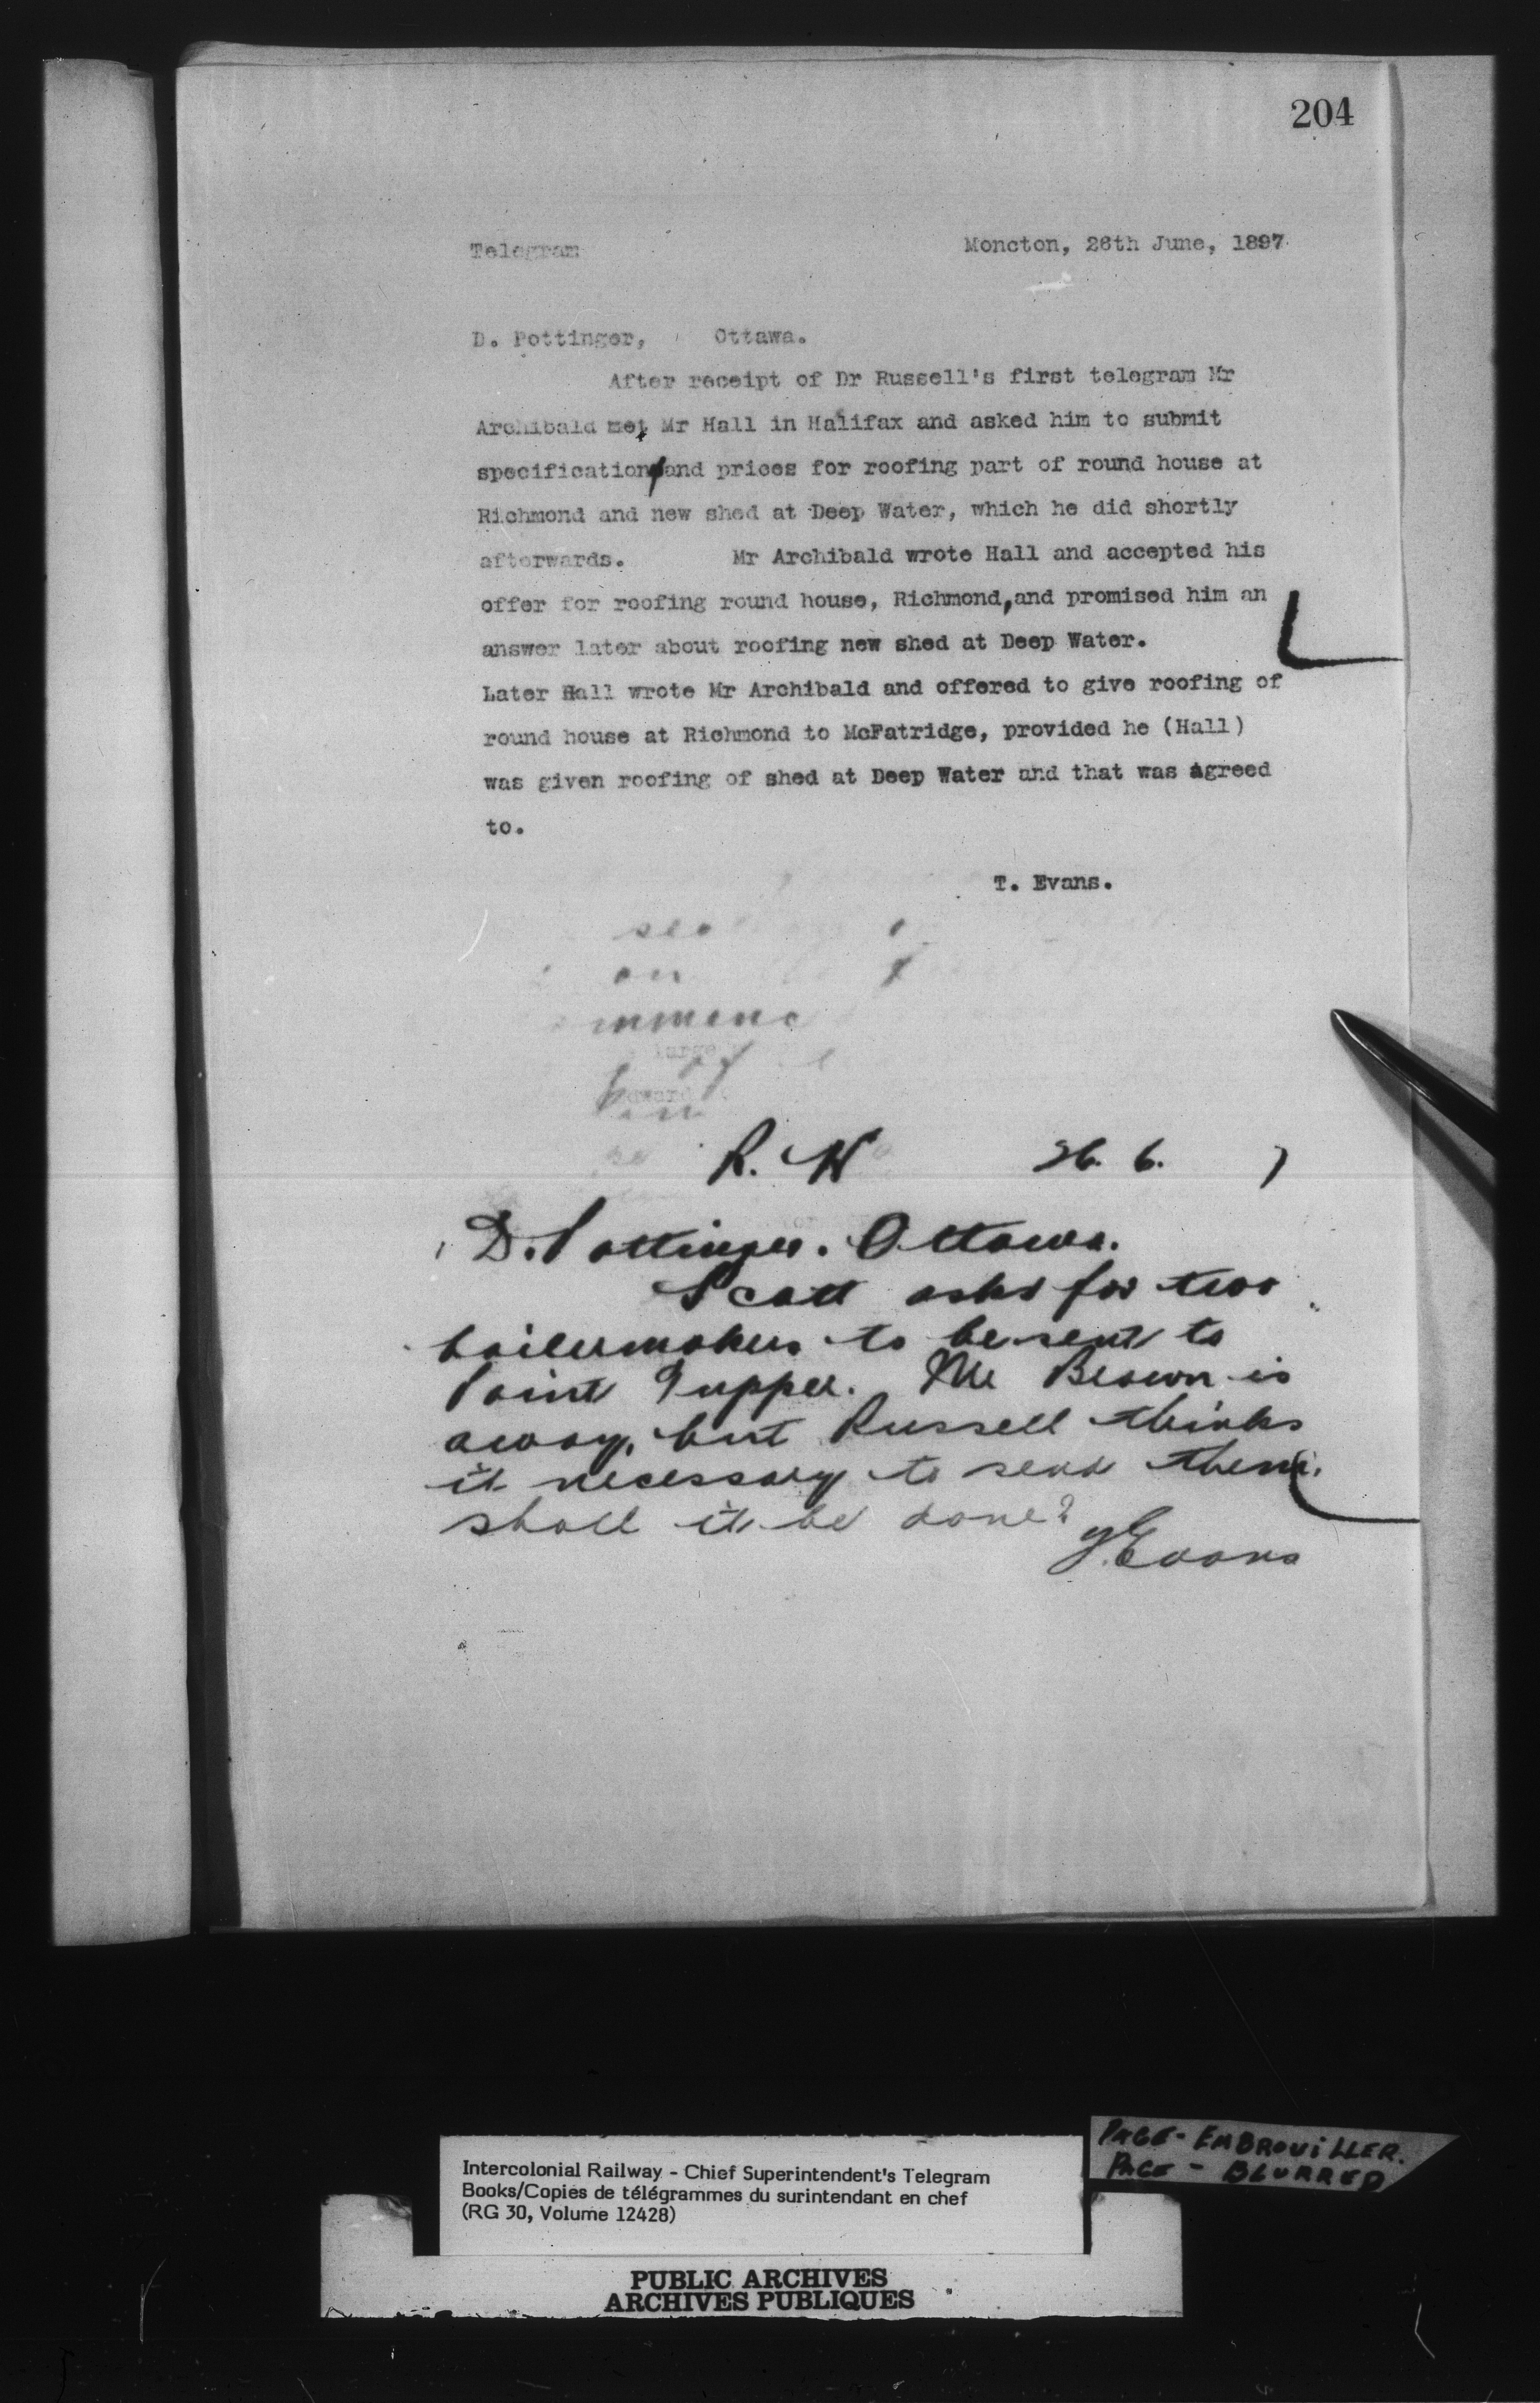 204
Telegram Moncton, 26th June, 1897
D. Pottinger, Ottawa.
After receipt of Dr Russell's first telegram Mr
Archibald met Mr Hall in Halifax and asked him to submit
specification and prices for roofing part of round house at
Richmond and new shed at Deep Water, which he did shortly
afterwards. Mr Archibald wrote Hall and accepted his
offer for roofing round house, Richmond, and promised him an
answer later about roofing new shed at Deep Water.
Later Hall wrote Mr Archibald and offered to give roofing of
round house at Richmond to McFatridge, provided he (Hall)
was given roofing of shed at Deep Water and that was agreed
to.
T. Evans.
R. W 26. 6. 7
D. Pottinger. Ottawa.
Scott asks for two
boilermakers to be sent to
Point Tupper. Mr Brown is
away, but Russell thinks
it necessary to send them.
shall it be done?
T. Evans
PAGE - EMBROUILLER.
PAGE - BLURRED
Intercolonial Railway - Chief Superintendent's Telegram
Books/Copies de télégrammes du surintendant en chef
(RG 30, Volume 12428)
PUBLIC ARCHIVES
ARCHIVES PUBLIQUES